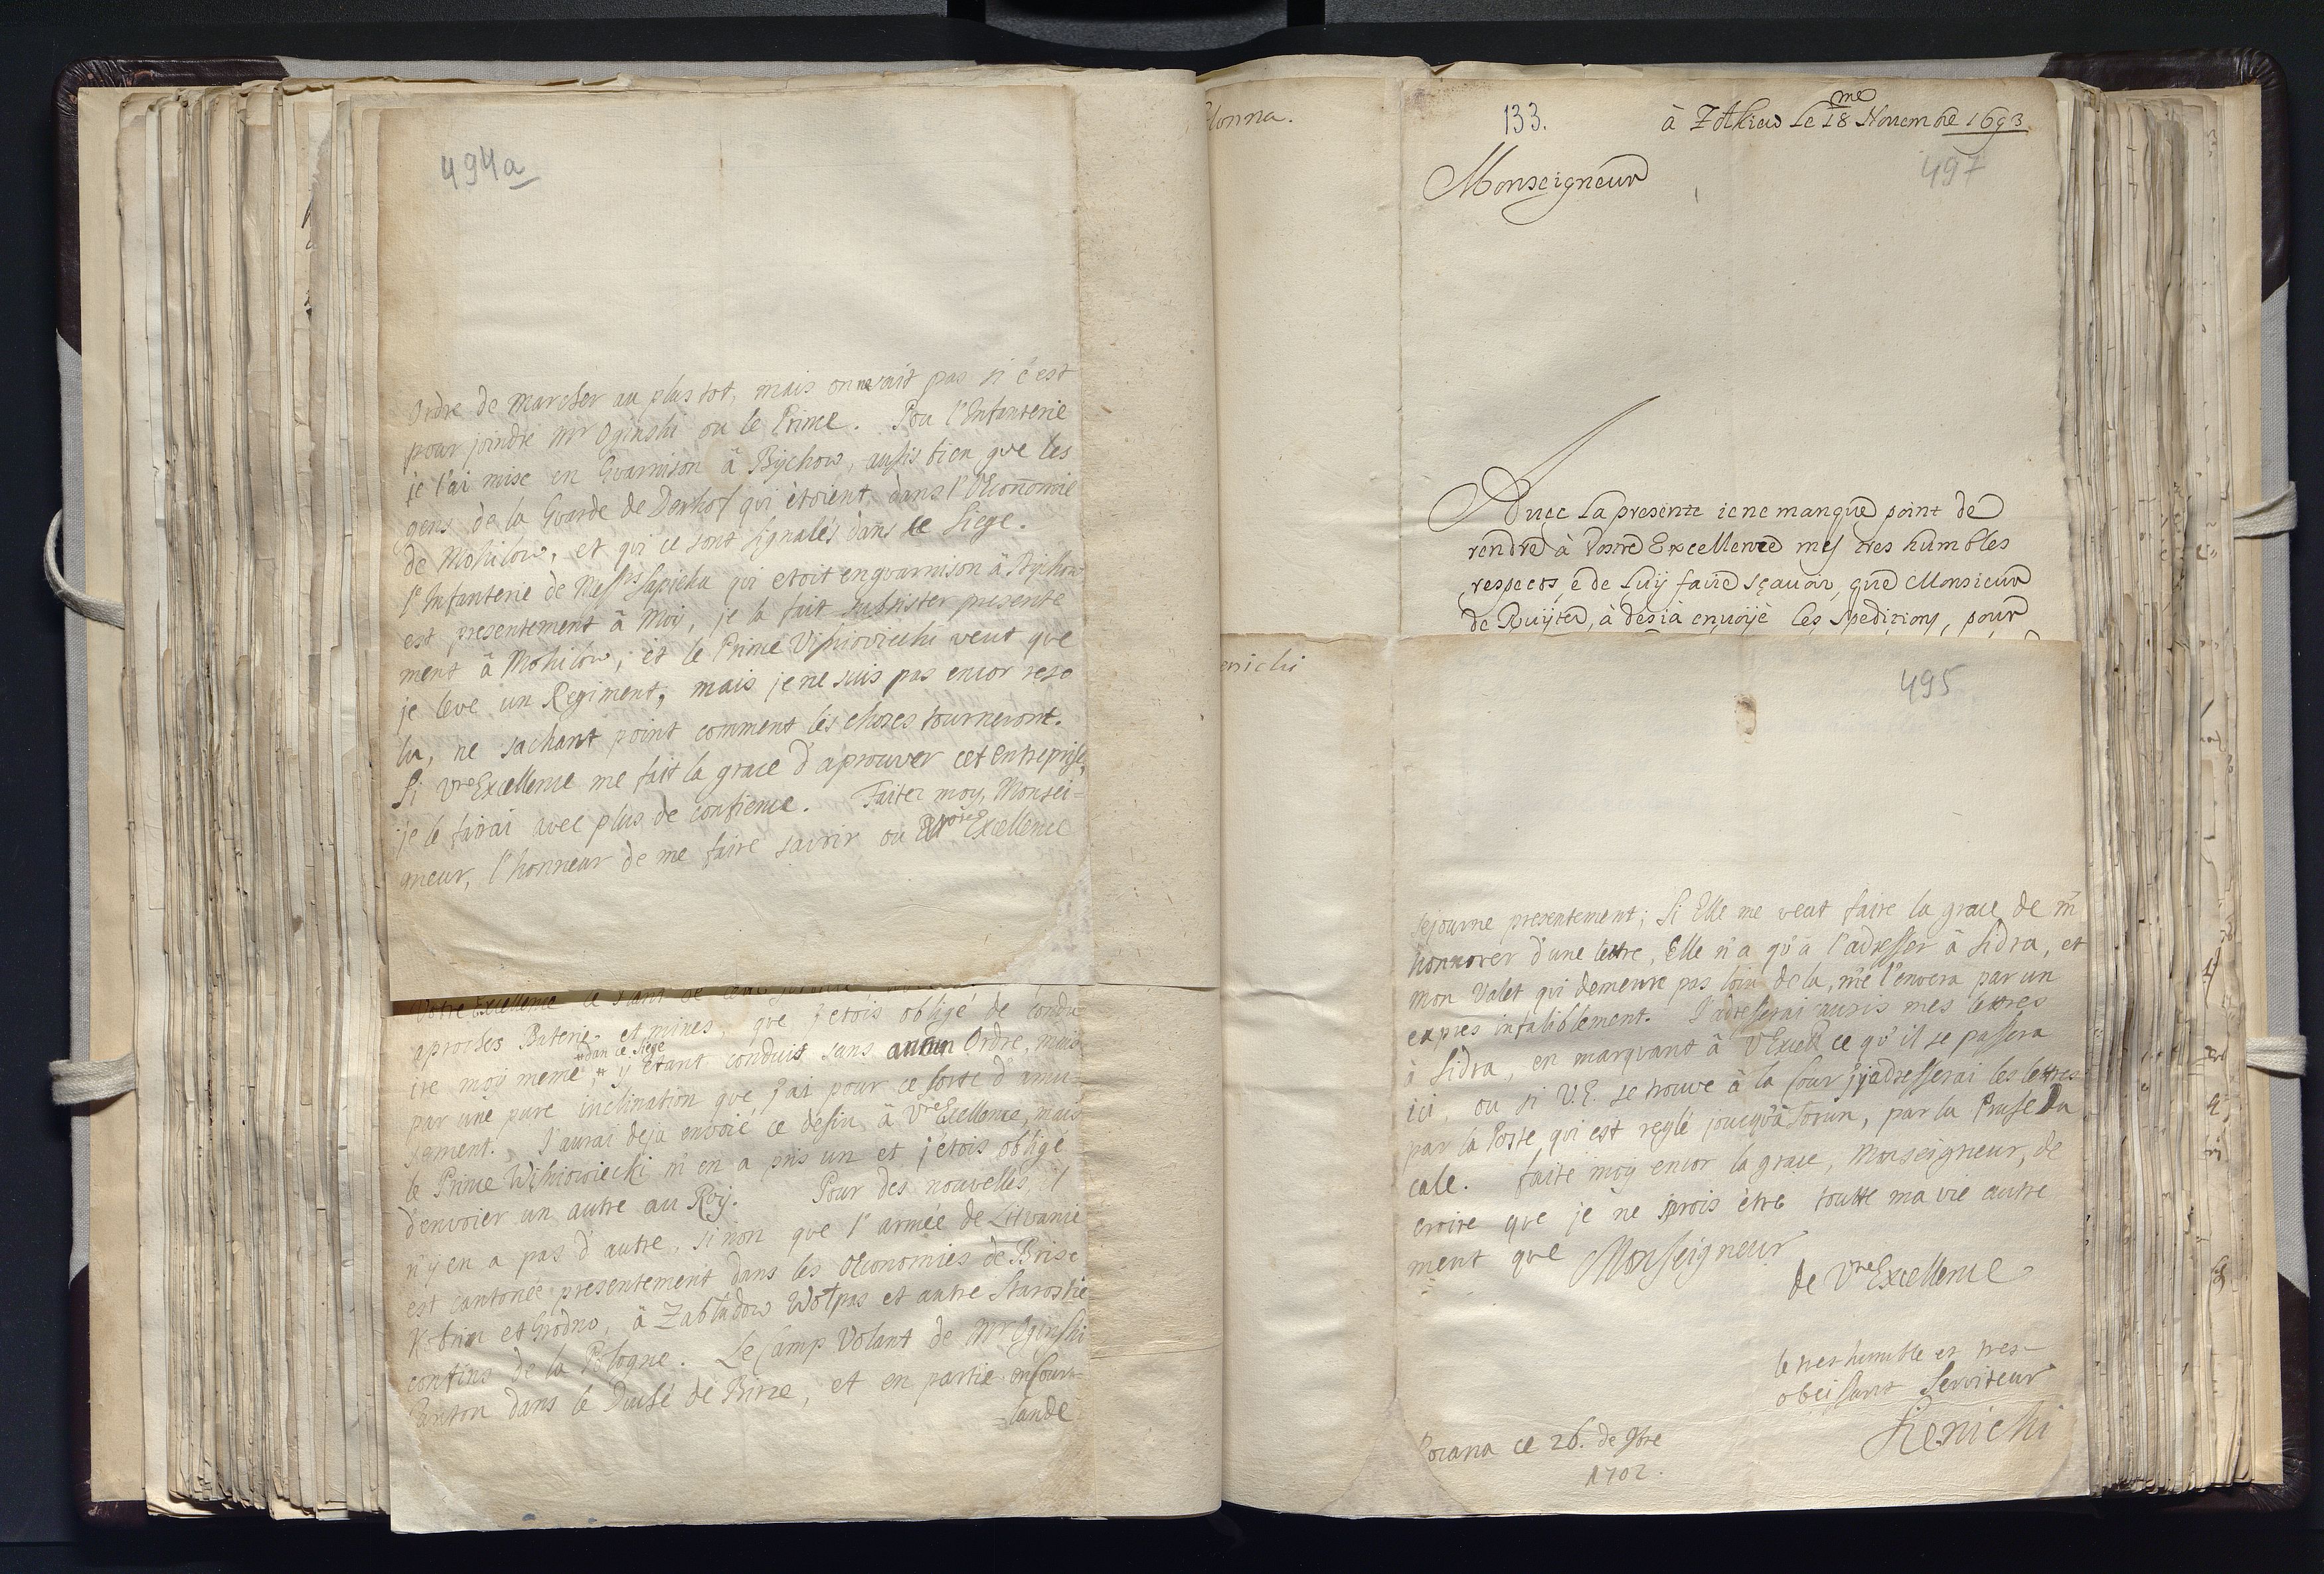 494a
Ordre de marcher au plus tot, mais on ne sait pas si c'est
pour joindre Mr Oginski ou le Prince. Pou l'Infanterie
je l'ai mise en Gvarnison à Bychow, aussis bien que les
gens de la Gvarde de Denhof qvi étoient dans l'Oeconomie
de Mohilow, et qvi ce sont signalés dans le Siege.
l'Infanterie de Messrs Sapieha qvi etoit en gvarnison à Bychow
est presentement à Moy, je la fait subsister presente
ment à Mohilow; et le Prince Visnioviechi veut que
je leve un Regiment, mais je ne suis pas encor reso
lu, ne sachant point comment les choses tourneront.
Si Vre Excellence me fait la grace d'aprouver cet entreprise,
je le fairai avec plus de confience. Faitez moy, Monsei=
gneur, l'honneur de me faire savoir ou Votre Excellence
Votre Excellence
aproches Baterie et mines, que j'etois obligé de condu
ire moy meme, # y etant conduit sans aucun Ordre, mais
# dan ce Siege
par une pure inclination que j'ai pour ce sorte d'amu=
sement. J'aurai deja envoié ce desin à Vre Excellence, mais
le Prince Wisniowiecki m'en a pris un et j'étois obligé
d'envoier un autre au Roy. Pour des nouvelles, il
n'y en a pas d'autre, si non que l'armée de Litvanie
est cantonée presentement dans les Oeconomies de Brise
Kobrin et Grodno, à Zabludow Wolpas et autre Starostie
confins de la Pologne. Le Camp Volant de Mr Oginski
Canton dans le Duché de Birze, et en partie en Cour=
=lande
lonna.
133.
à Zolkiew le 18me Novembe 1693
497
Monseigneur
Avec la presente ie ne manque point de
rendre à Vostre Excellence mes tres humbles
respects, e de luy faire sçavoir, que Monsieur
de Ruyter, à desià envoyé les Speditions, pour
enichi
495
sejourne presentement; Si Elle me veut faire la grace de m'
honnorer d'une lettre, Elle n'a qu'à l'adresser à Sidra, et
mon Valet qvi demeure pas loin de la, me l'envera par un
expres infaliblement. J'adresserai aussis mes lettres
à Sidra, en marquant à V Excell ce qv'il se passera
ici, ou si V.E. se trouve à la Cour j'y adresserai les lettres
par la Poste, qvi est reglé joucqv'à Torun, par la Pruse Du
cale. Faite moy encor la grace, Monseigneur, de
croire que je ne srois être toutte ma vie autre
ment que Monseigneur
de Vre Excellence
le tres humble et tres-
obeissant Serviteur
Sienichi
ce 26. de 9bre
1702.